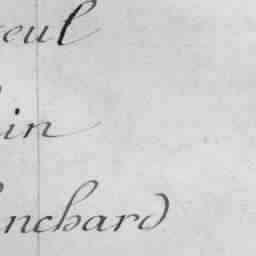 eul
in
nchard